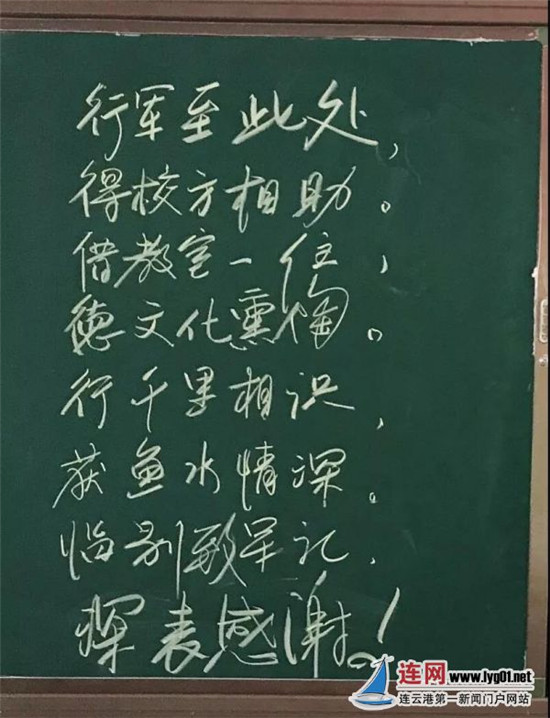 行军至此处，
得校方相助。
借教室一住，
德文化熏陶。
行千里相识，
获鱼水情深。
临别敬军礼，
挥表感谢！
连网 www.lyg01.net
连云港第一新闻门户网站